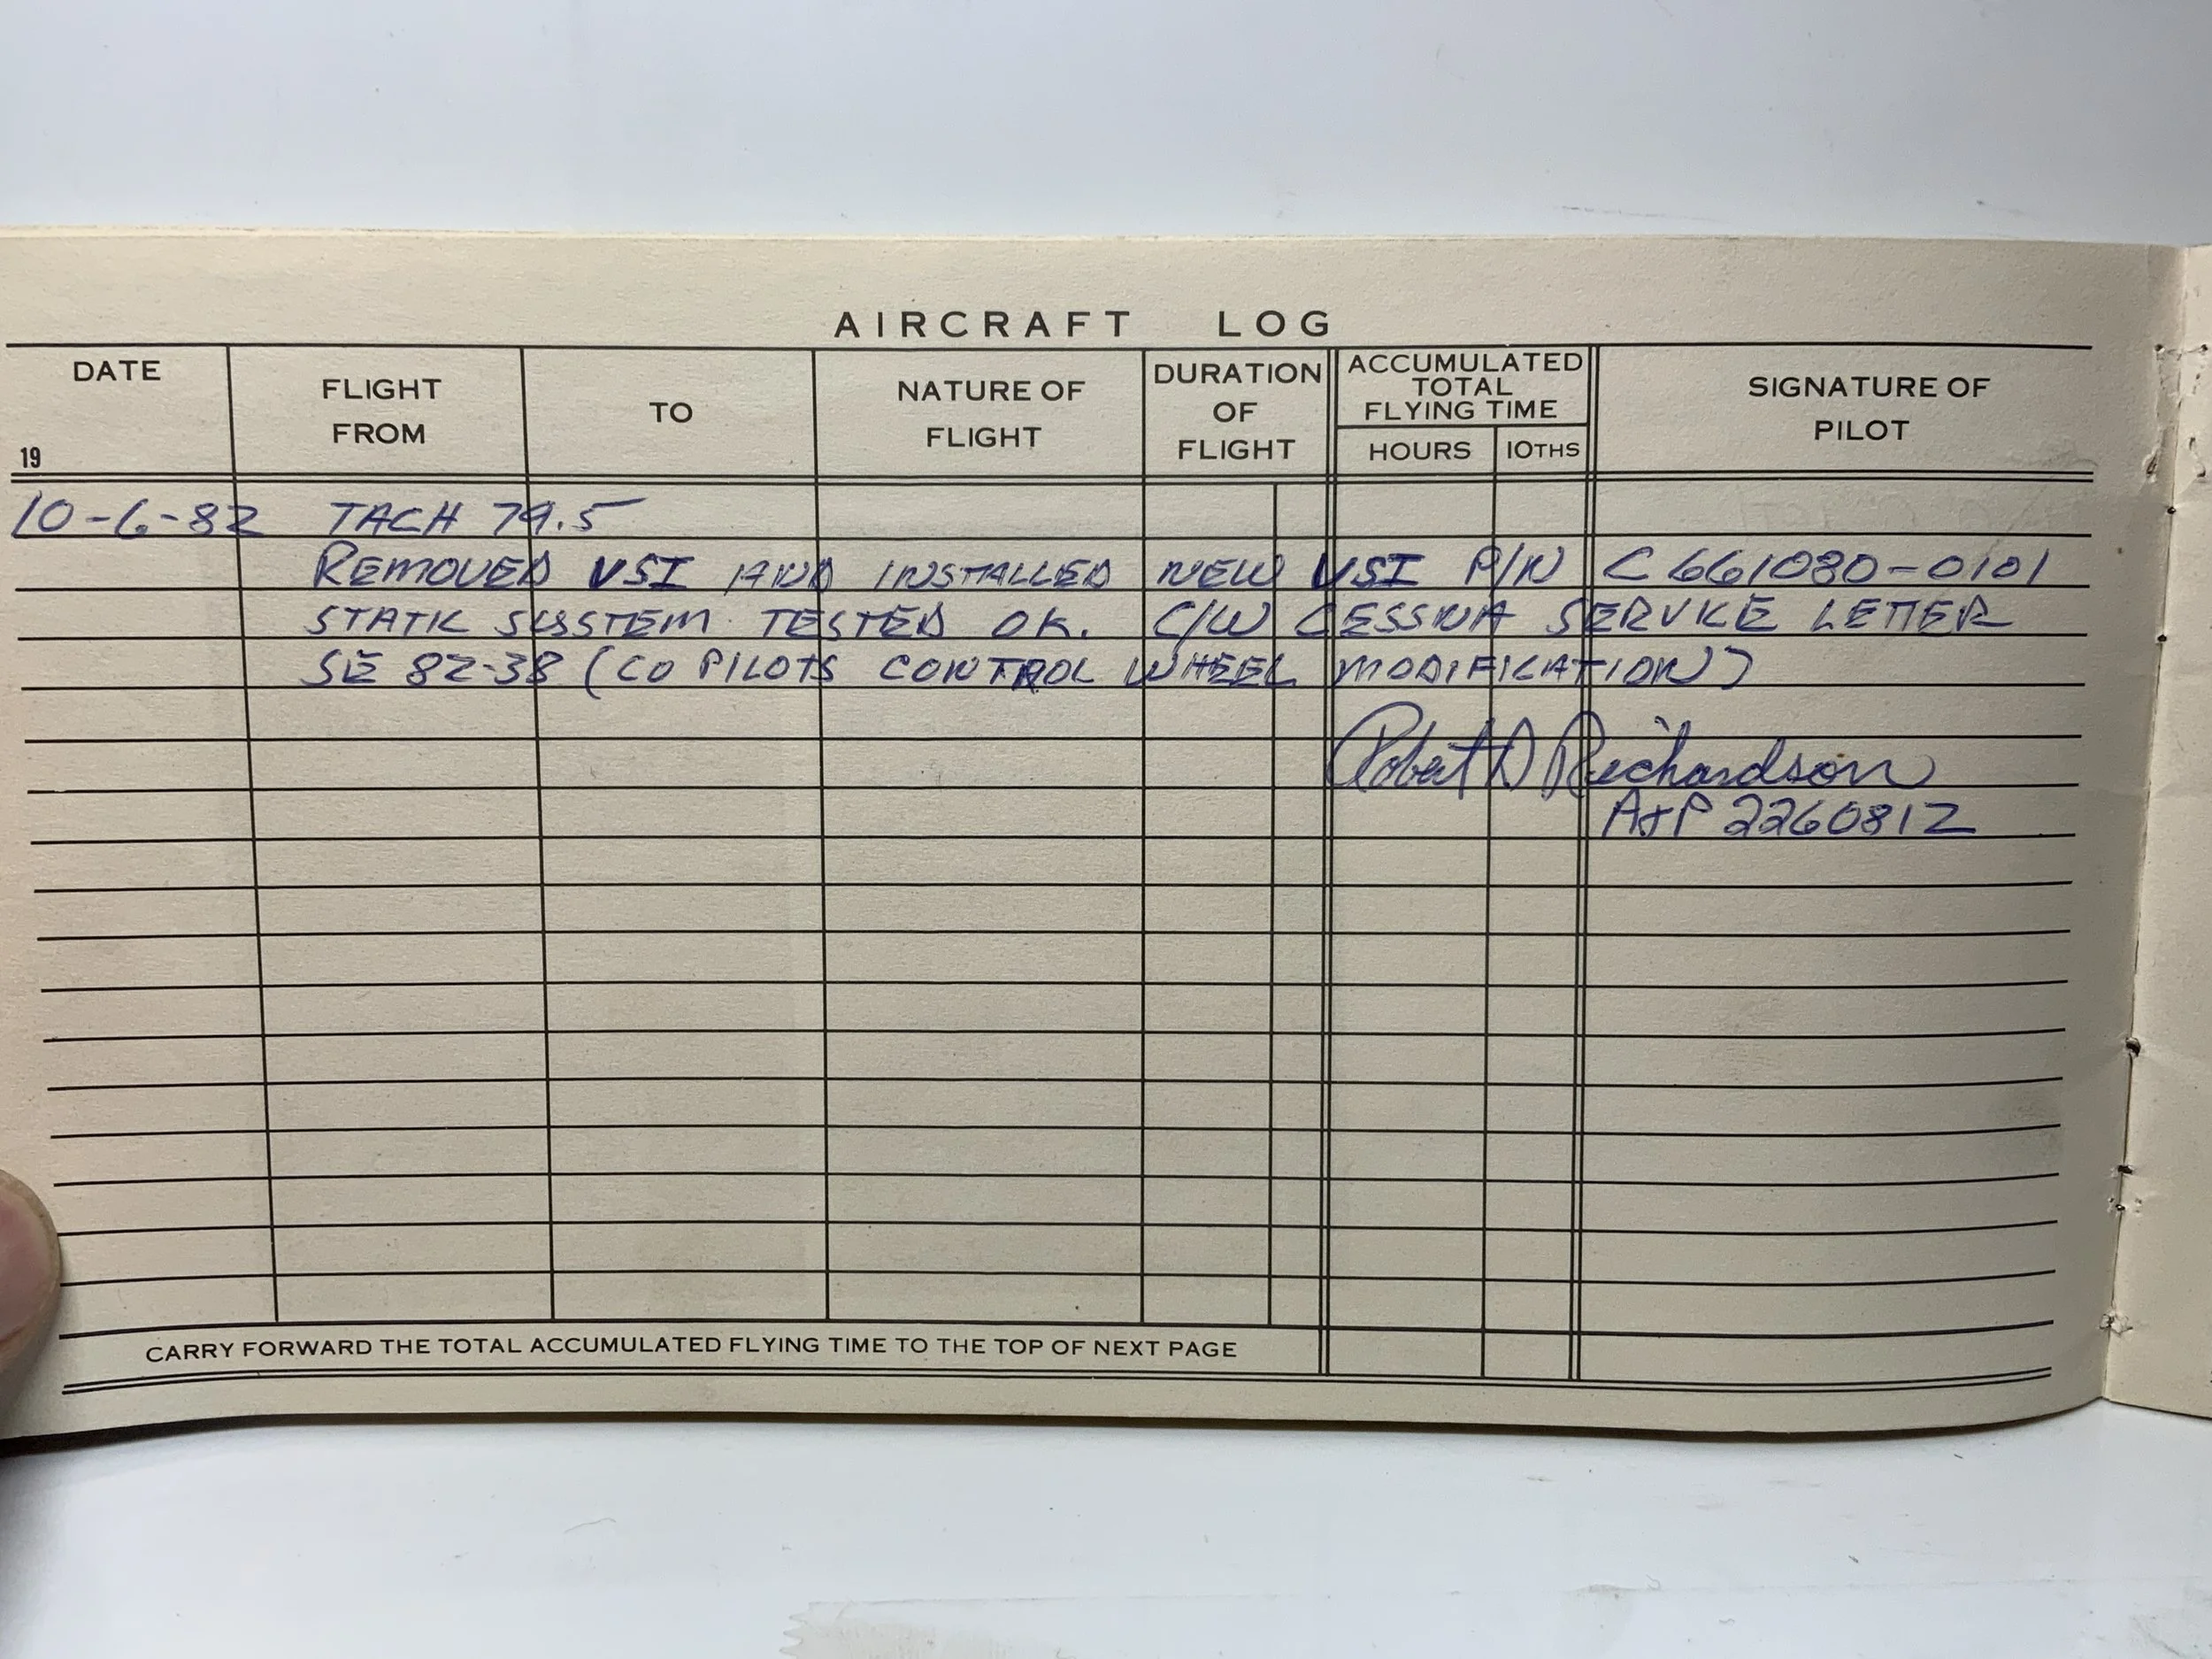 AIRCRAFT LOG
DATE
19
FLIGHT
FROM
TO
NATURE OF
FLIGHT
DURATION
OF
FLIGHT
ACCUMULATED
TOTAL
FLYING TIME
HOURS
10THS
SIGNATURE OF
PILOT
10-6-82 TACH 79.5
REMOVED VSI AND INSTALLED NEW VSI P/N C661080-0101
STATIC SYSTEM TESTED OK. C/W CESSNA SERVICE LETTER
SE 82-38 (CO PILOTS CONTROL WHEEL MODIFICATION)
Robert D Richardson
A+P 2260812
CARRY FORWARD THE TOTAL ACCUMULATED FLYING TIME TO THE TOP OF NEXT PAGE